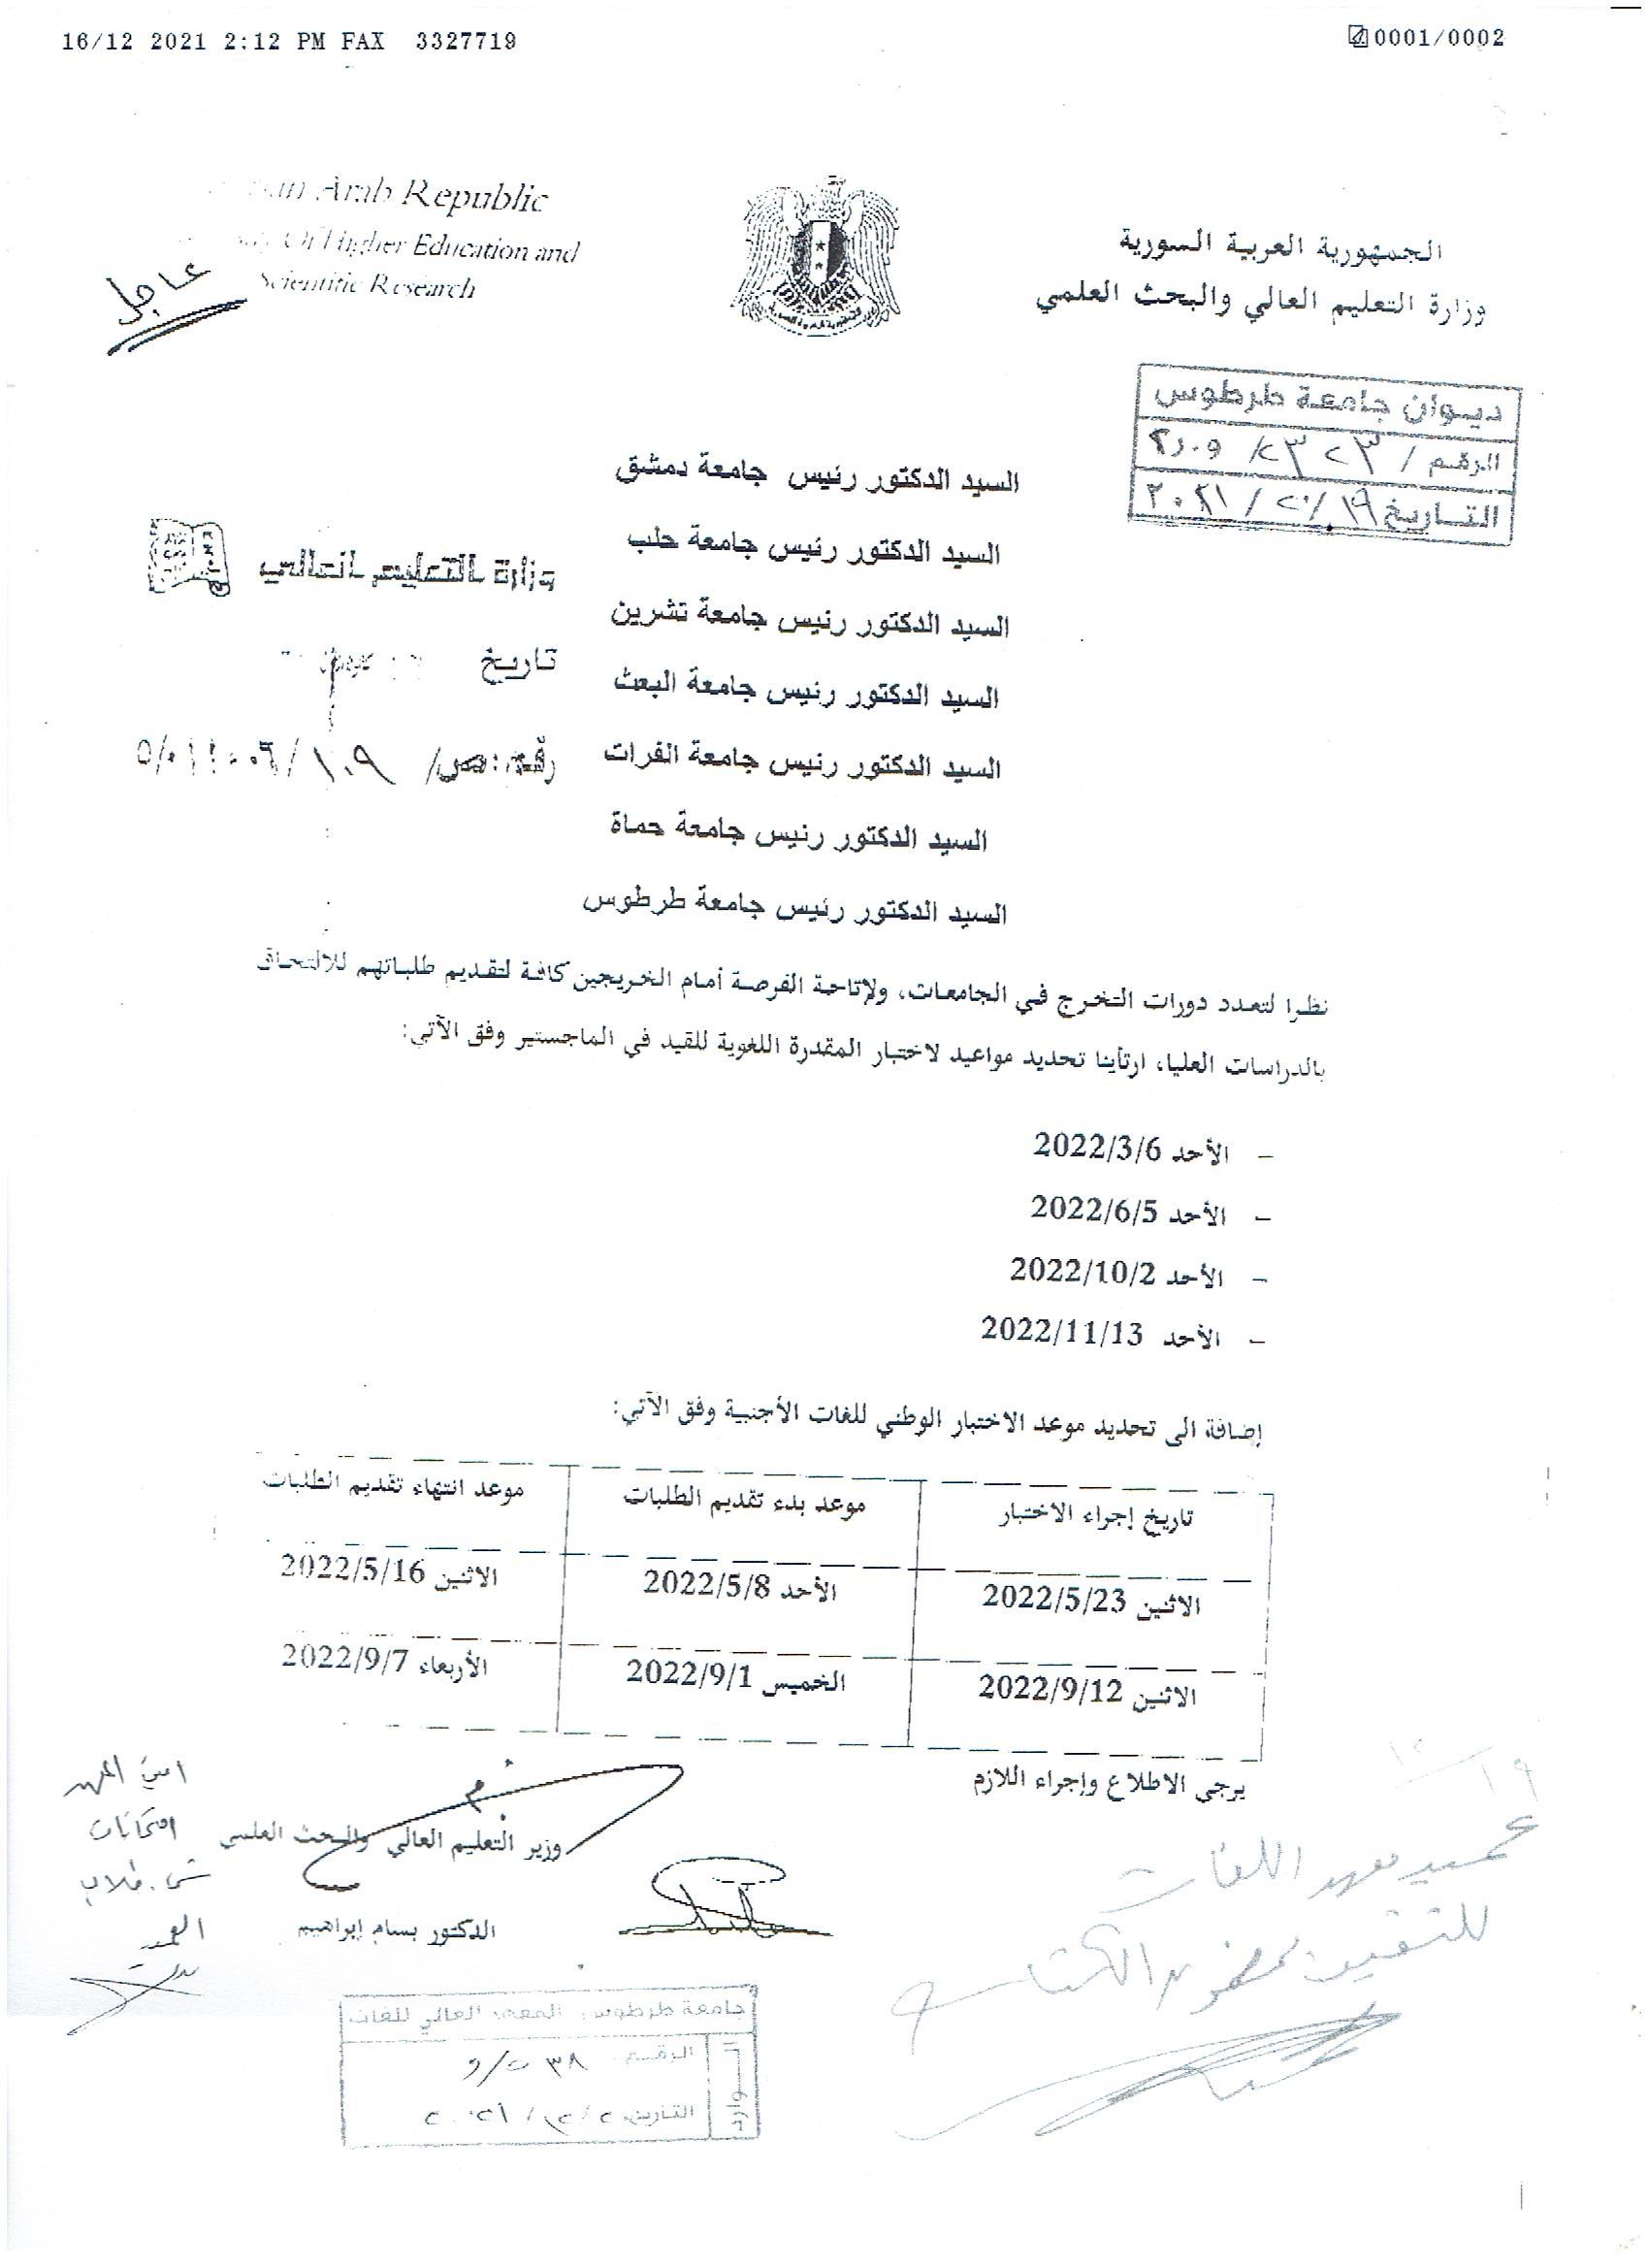 16/12 2021 2:12 PM FAX 3327719
0001/0002
Arab Republic
Of Higher Education and
Scientific Research
عاجل
الجمهورية العربية السورية
وزارة التعليم العالي والبحث العلمي
ديوان جامعة طرطوس
الرقم /
التاريخ ١٩/
السيد الدكتور رئيس جامعة دمشق
السيد الدكتور رئيس جامعة حلب
وزارة التعليم العالي
السيد الدكتور رئيس جامعة تشرين
تاريخ
السيد الدكتور رئيس جامعة البعث
السيد الدكتور رئيس جامعة الفرات
السيد الدكتور رئيس جامعة حماة
السيد الدكتور رئيس جامعة طرطوس
نظرا لتعدد دورات التخرج في الجامعات، ولإتاحة الفرصة أمام الخريجين كافة لتقديم طلباتهم للالتحاق
بالدراسات العليا، ارتأينا تحديد مواعيد لاختبار المقدرة اللغوية للقيد في الماجستير وفق الآتي:
- الأحد 2022/3/6
- الأحد 2022/6/5
- الأحد 2022/10/2
- الأحد 2022/11/13
إضافة الى تحديد موعد الاختبار الوطني للغات الأجنبية وفق الآتي:
تاريخ إجراء الاختبار موعد بدء تقديم الطلبات موعد انتهاء تقديم الطلبات
الاثنين 2022/5/23 الأحد 2022/5/8 الاثنين 2022/5/16
الاثنين 2022/9/12 الخميس 2022/9/1 الأربعاء 2022/9/7
يرجى الاطلاع وإجراء اللازم
وزير التعليم العالي والبحث العلمي
الدكتور بسام إبراهيم
امتحانات
ش. طلاب
عميد معهد اللغات
جامعة طرطوس المعهد العالي للغات
الوارد
الرقم
التاريخ